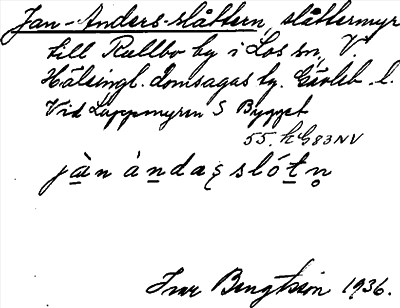 Jan-Anders-slåttern, slåttermyr
till Rullbo by i Los sn, V.
Hälsingl. domsagas tg. Gävleb. l.
Vid Lappmyren S Bygget
55. h G83NV
jàn àndaʂ slótn̥
Ivar Bengtsson 1936.